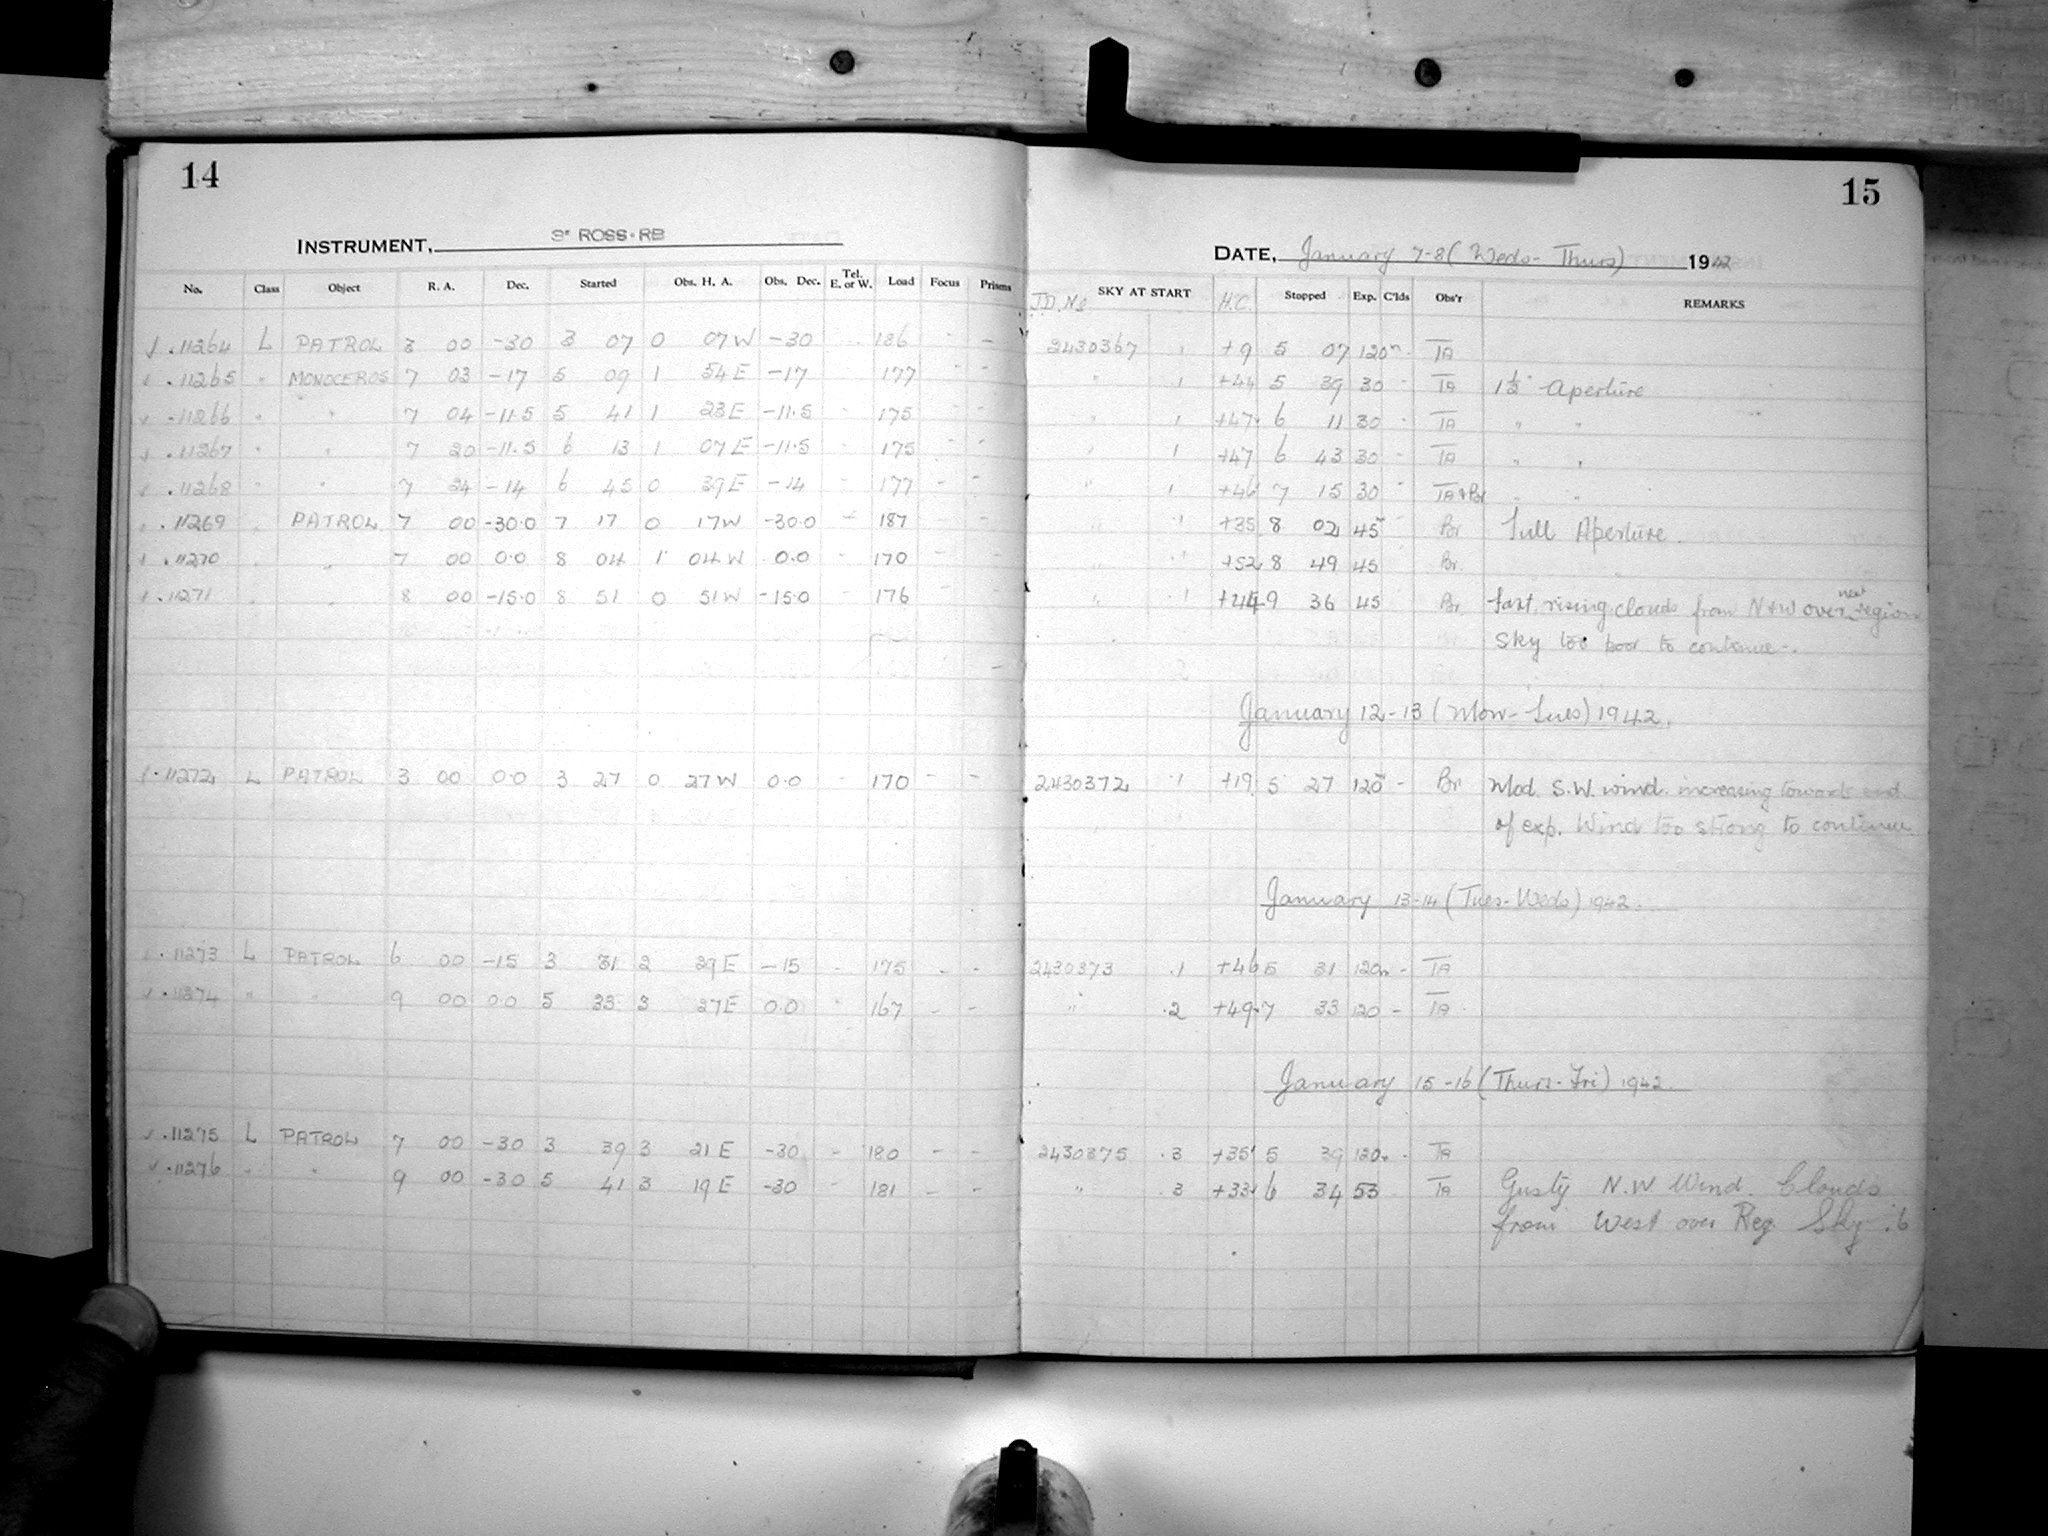 14
INSTRUMENT, 3" ROSS-RB
No. Class Object R. A. Dec. Started Obs. H. A. Obs. Dec. Tel. E. or W. Load Focus Prisms
.11264 L PATROL 3 00 -30 3 07 0 07W -30 186 -
.11265 " MONOCEROS 7 03 -17 5 09 1 54E -17 177
.11266 " " 7 04 -11.5 5 41 1 23E -11.5 175
.11267 " " 7 20 -11.5 6 13 1 07E -11.5 175
.11268 " " 7 24 -14 6 45 0 39E -14 177
.11269 " PATROL 7 00 -30.0 7 17 0 17W -30.0 187
.11270 " " 7 00 0.0 8 04 1 04W 0.0 170
.11271 " " 8 00 -15.0 8 51 0 51W -15.0 176
.11272 L PATROL 3 00 0.0 3 27 0 27W 0.0 - 170 - -
.11273 L PATROL 6 00 -15 3 31 2 29E -15 - 175 - -
.11274 " " 9 00 0.0 5 33 3 27E 0.0 167 - -
.11275 L PATROL 7 00 -30 3 39 3 21E -30 - 180 - -
.11276 " " 9 00 -30 5 41 3 19E -30 - 181 - -
15
DATE, January 7-8 (Weds-Thurs) 1942
J.D. No. SKY AT START H.C. Stopped Exp. C'lds Obs'r REMARKS
2430367 .1 +9 5 07 120m - TA
" .1 +44 5 39 30 - TA 1½" Aperture
" .1 +47 6 11 30 - TA " "
" .1 +47 6 43 30 - TA " "
" .1 +46 7 15 30 - TA+Br " "
" .1 +35 8 02 45 - Br Full Aperture.
" .1 +52 8 49 45 Br
" .1 +44 9 36 45 Br fast rising clouds from N+W over next region
Sky too poor to continue-.
January 12-13 (Mon-Tues) 1942.
2430372 .1 +19 5 27 120m - Br Mod. S.W. wind. increasing towards end
of exp. Wind too strong to continue
January 13-14 (Tues-Weds) 1942.
2430373 .1 +46 5 31 120m - TA
" .2 +49 7 33 120 - TA
January 15-16 (Thurs-Fri) 1942.
2430375 .3 +35 5 39 120m - TA
" .3 +33 6 34 53 TA Gusty N.W Wind. Clouds
from West over Reg Sky .6